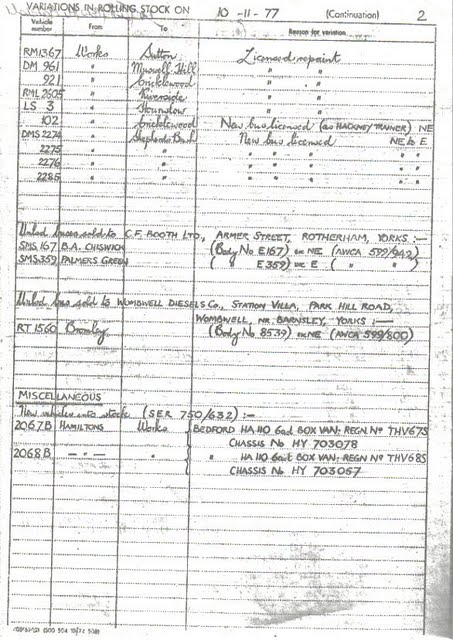 VARIATIONS IN ROLLING STOCK ON 10-11-77 (Continuation) 2
Vehicle number From To Reason for variation
RM1367 Works Sutton Licensed, repaint
DM 961 " Muswell Hill " "
921 " Cricklewood " "
RML 2605 " Riverside " "
LS 3 " Hounslow " "
102 " Cricklewood New bus licensed (as HACKNEY TRAINER) NE
DMS 2274 " Shepherds Bush New bus licensed NE to E
2275 " " " " " " "
2276 " " " " " " "
2285 " " " " " " "
Unlicd buses sold to C.F. BOOTH LTD., ARMER STREET, ROTHERHAM, YORKS :-
SMS.167 B.A. CHISWICK (Body No E167) NE (AWCA 599/942)
SMS359 PALMERS GREEN ( " E359) E ( " " )
Unlicd bus sold to WOMBWELL DIESELS Co., STATION VILLA, PARK HILL ROAD,
WOMBWELL, NR BARNSLEY, YORKS :-
RT 1560 Bromley (Body No 8539) NE (AWCA 599/800)
MISCELLANEOUS
New vehicles into stock (SER 750/632) :-
2067B HAMILTONS Works BEDFORD HA110 6cwt BOX VAN: REGN Nº THV67S
CHASSIS No HY 703078
2068B — " — " " HA 110 6cwt BOX VAN: REGN Nº THV68S
CHASSIS No HY 703067